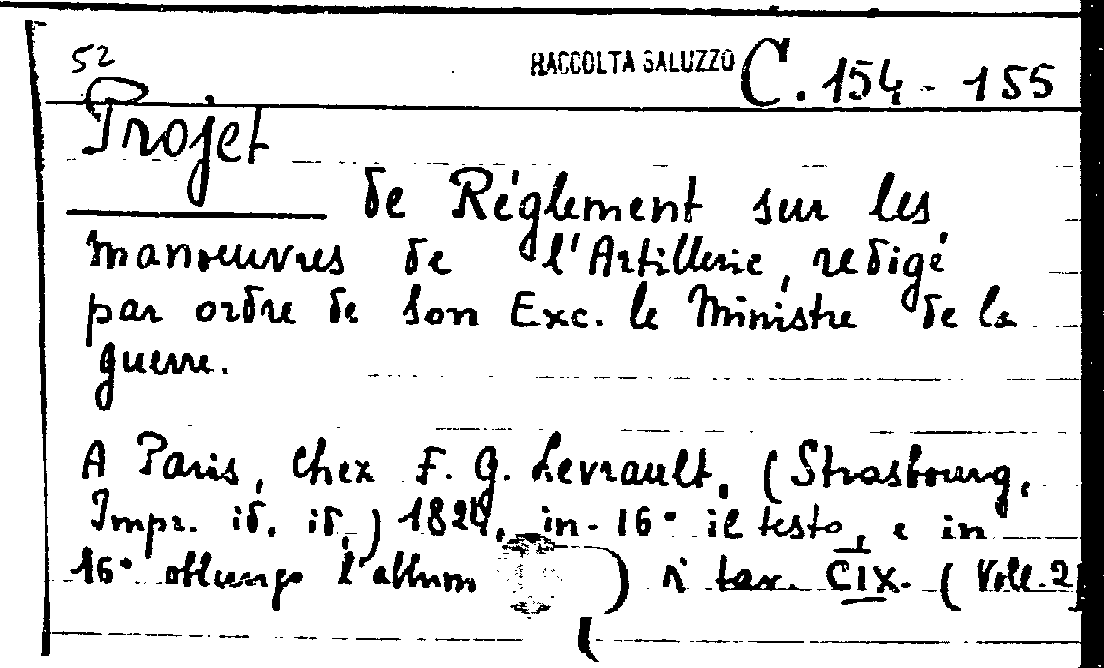 52 RACCOLTA SALUZZO C. 154 - 155
Projet
de Réglement sur les
manoeuvres de l'Artillerie, redigé
par ordre de son Exc. le Ministre de la
guerre.
A Paris, chez F. G. Levrault, (Strasbourg,
Impr. id. id.) 1824, in-16° il testo, e in
16° oblungo l'album ) di tav. CIX. (Voll. 2)